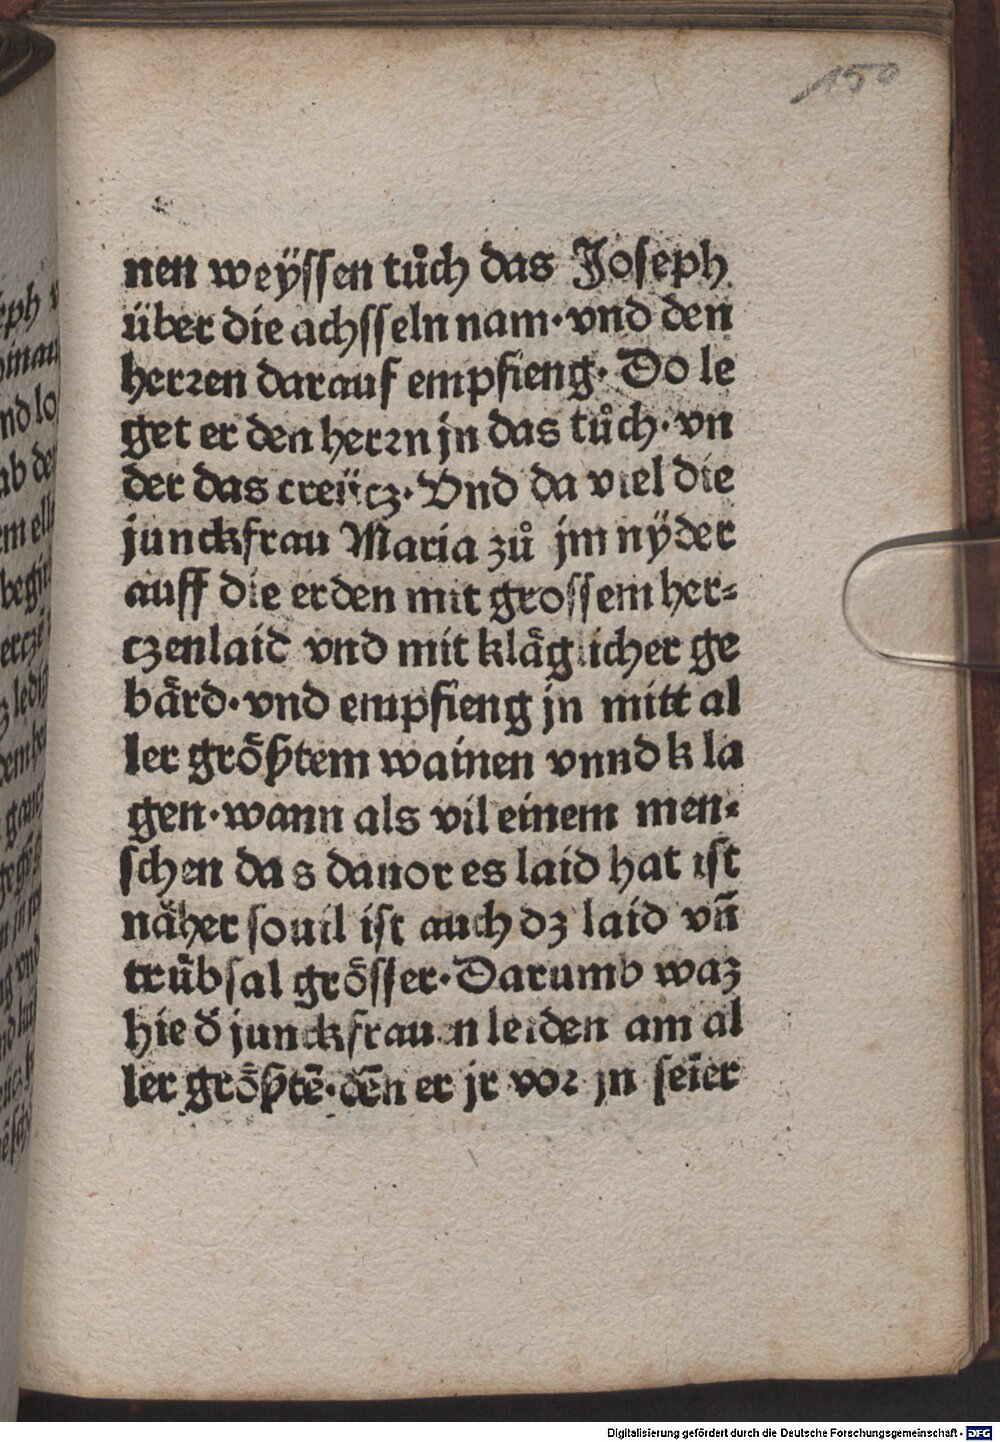 150
nen weÿssen tuͦch das Joseph
über die achsseln nam·vnd den
herꝛen darauf empfieng· Do le
get er den herꝛn jn das tuͦch·vn
der das creücz·Vnd da viel die
junckfrau Maria zuͦ jm nÿder
auff die erden mit grossem her⸗
czenlaid vnd mit klaͤglicher ge
baͤrd·vnd empfieng jn mitt al
ler groͤßtem wainen vnnd kla
gen·wann als vil einem men⸗
schen das dauor es laid hat ist
naͤher souil ist auch dz laid vn̄
truͤbsal groͤsser·Darumb waz
hie d̕ junckfrauen leiden am al
ler groͤßtē·dēn er jr voꝛ jn seīer
Digitalisierung gefördert durch die Deutsche Forschungsgemeinschaft - DFG